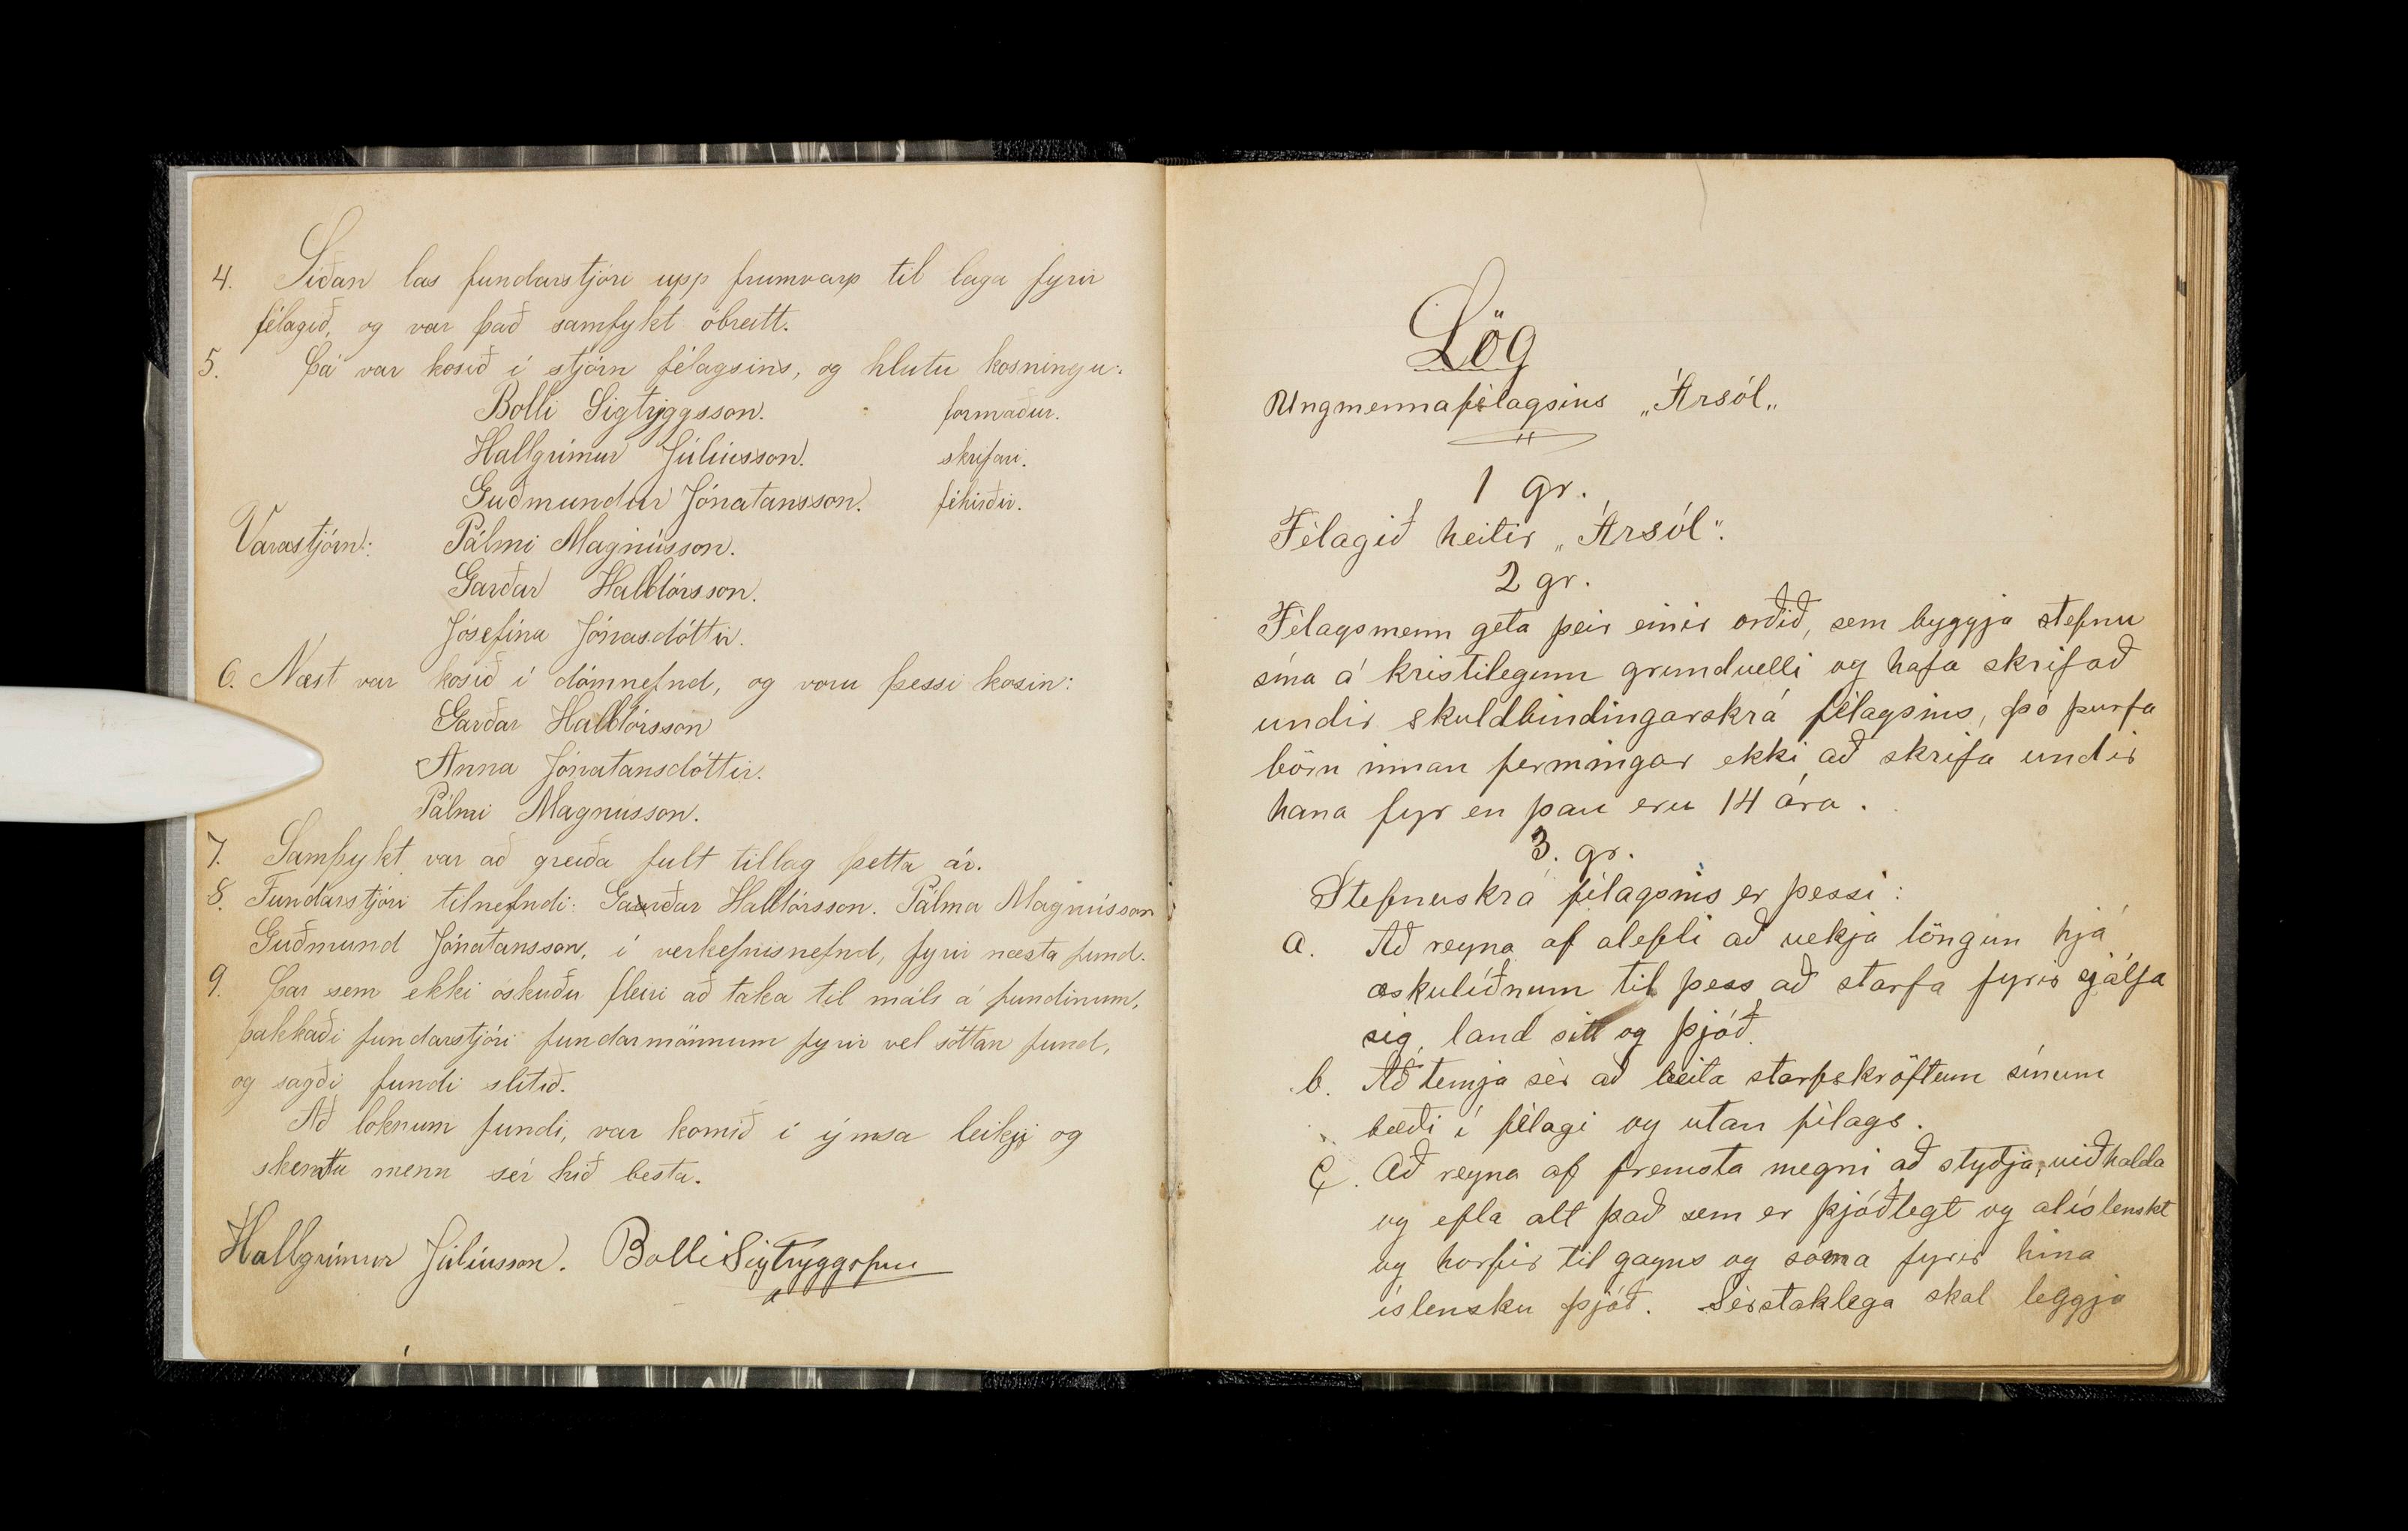 4. Síðan las fundarstjóri upp frumvarp til laga fyrir
félagið, og var það samþykt óbreitt.
5. Þá var kosið í stjórn félagsins, og hlutu kosningu:
Bolli Sigtryggsson. formaður.
Hallgrímur Júlíusson. skrifari.
Guðmundur Jónatansson. féhirðir.
Varastjórn: Pálmi Magnússon.
Garðar Halldórsson.
Jósefína Jónasdóttir.
6. Næst var kosið í dómnefnd, og voru þessi kosin:
Garðar Halldórsson
Anna Jónatansdóttir.
Pálmi Magnússon.
7. Samþykt var að greiða fult tillag þetta ár.
8. Fundarstjóri tilnefndi: Garðar Halldórsson. Pálma Magnússon
Guðmund Jónatansson, í verkefnisnefnd, fyrir næsta fund.
9. Þar sem ekki óskuðu fleiri að taka til máls á fundinum,
þakkaði fundarstjóri fundarmönnum fyrir vel sóttan fund,
og sagði fundi slitið.
Að loknum fundi, var komið í ýmsa leikji og
skemtu menn sér hið besta.
Hallgrímur Júlíusson. Bolli Sigtryggsson
Lög
Ungmennafélagsins „Ársól„
1 gr.
Félagið heitir „Ársól".
2 gr.
Félagsmenn geta þeir einir orðið, sem byggja stefnu
sína á kristilegum grundvelli og hafa skrifað
undir skuldbindingarskrá félagsins, þó þurfa
börn innan fermingar ekki að skrifa undir
hana fyr en þau eru 14 ára.
3. gr.
Stefnuskrá félagsins er þessi:
a. Að reyna af alefli að vekja löngun hjá
æskulíðnum til þess að starfa fyrir sjálfa
sig, land sitt og þjóð.
b. Að temja sér að beita starfskröftum sínum
bæði í félagi og utan félags.
C. Að reyna af fremsta megni að styðja, viðhalda
og efla alt það sem er þjóðlegt og alíslenskt
og horfir til gagns og sóma fyrir hina
íslensku þjóð. Sérstaklega skal leggja